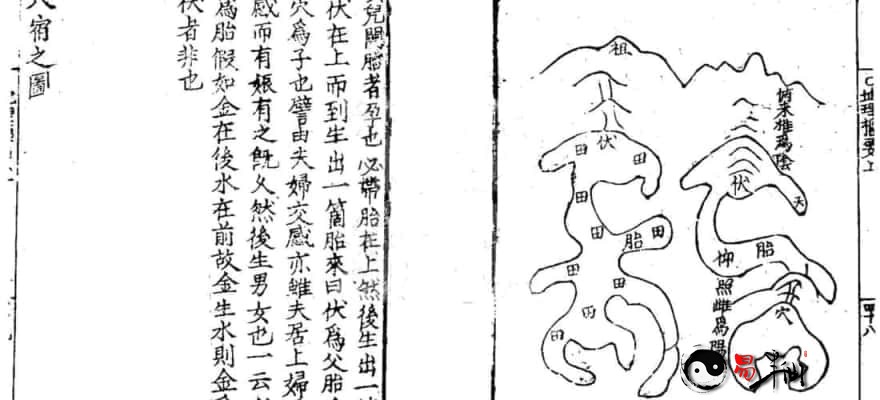 兒開胎者孕也必帶胎在上然後生出一
伏在上而到生出一箇胎來曰伏爲父胎
穴爲子也譬由夫婦交感亦雖夫居上婦
感而有娠有之旣久然後生男女也一云
爲胎假如金在後水在前故金生水則金
伏者非也
宿之圖
地理樞要上
四十八
祖
伏
田
田
田
田
胎
田
田
田
田
俯来雄爲陰
伏
天
胎
仰
照雌爲陽
穴
易